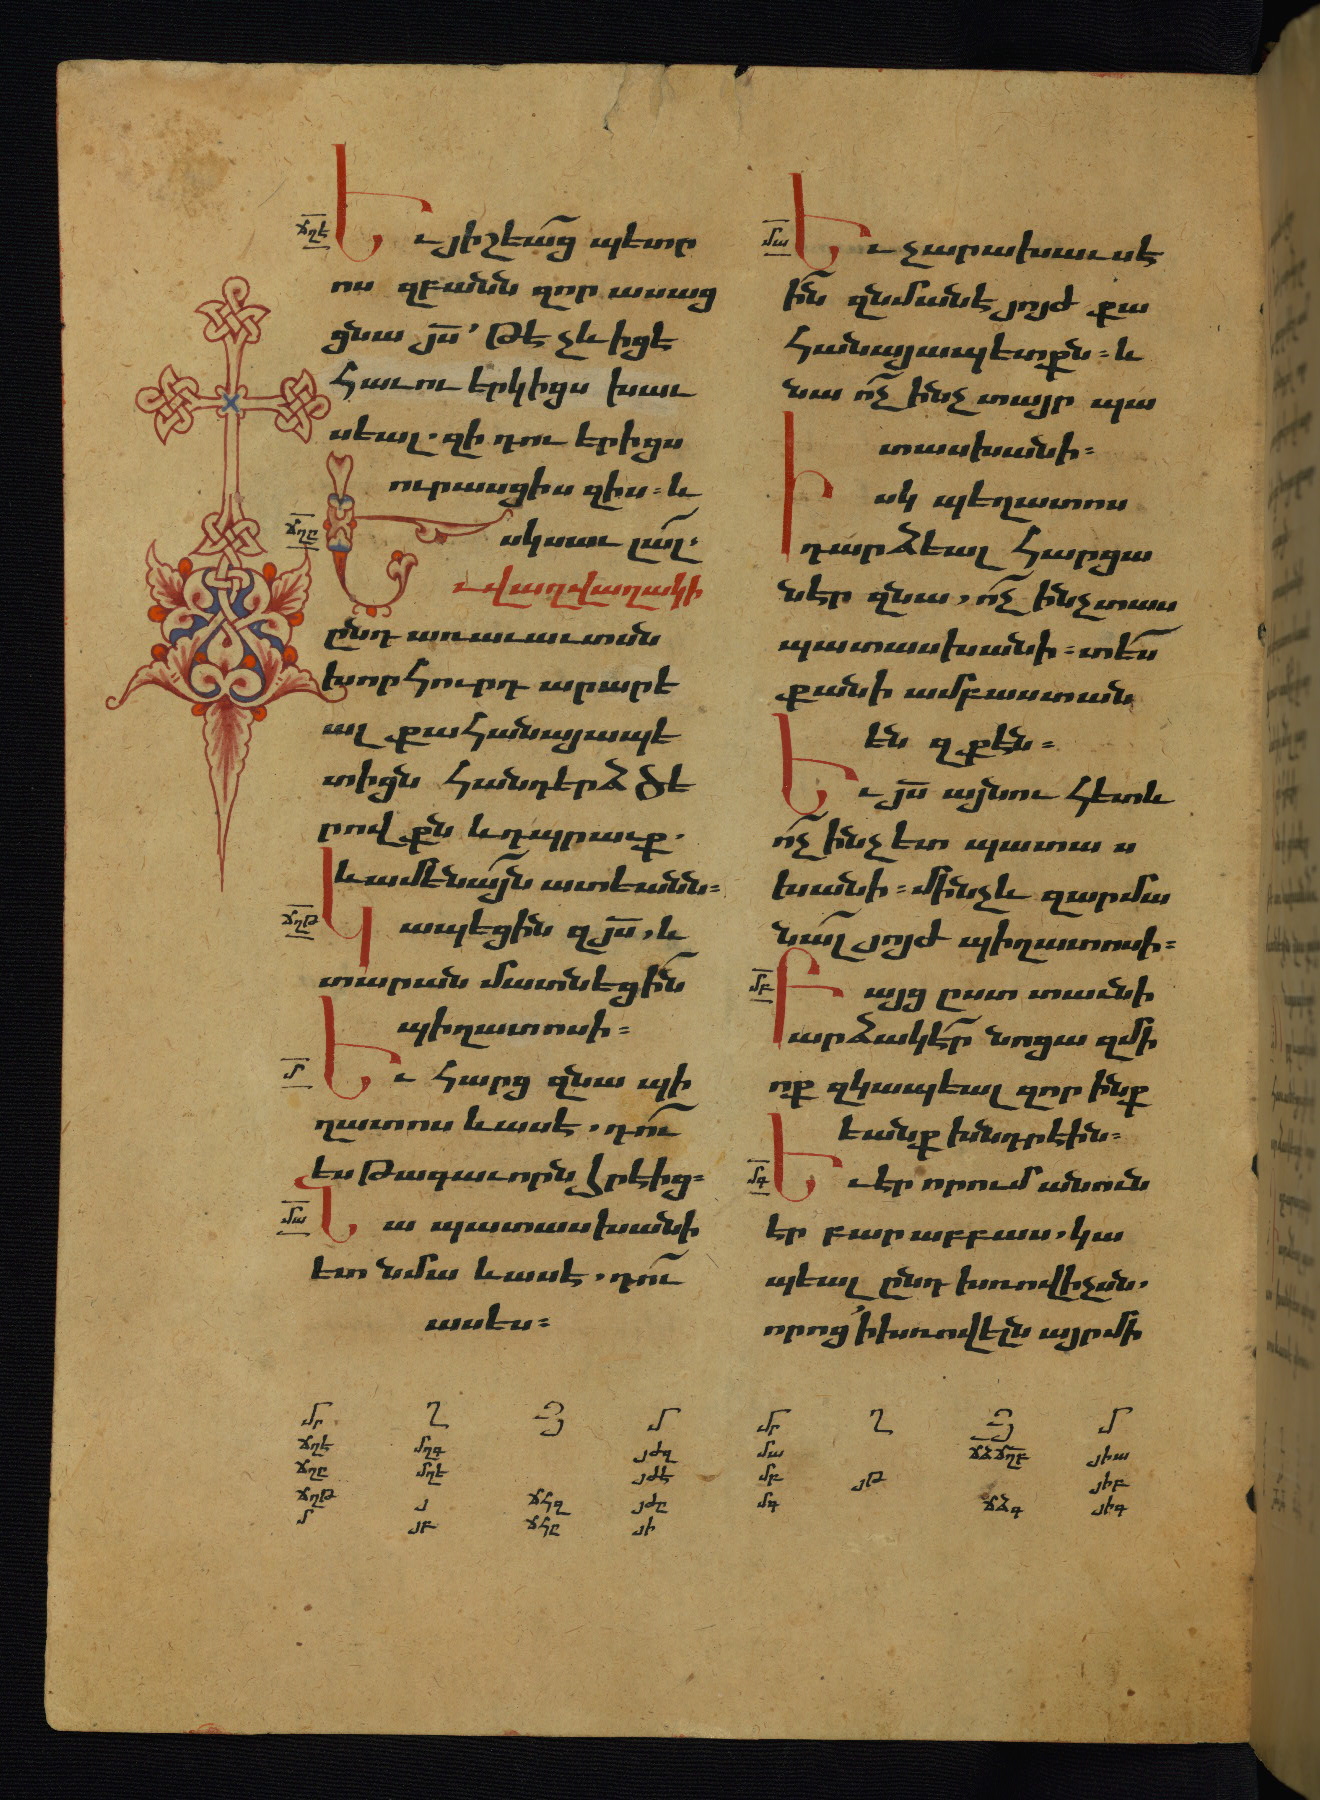 ճղէ
Եւ յիշեա՜ց պետր
ոս զբանն զոր ասաց
ցնա յս՝ թէ չև իցէ
հաւու երկիցս խաւ
սեալ. զի դու երիցս
ուրասցիս զիս։ և
ճղը
սկսաւ լալ.
Եւ վաղվաղակի
ընդ առաւաւտսն
խորհուրդ արարե
ալ քահանայապե
տիցն հանդերձ ծե
րովքն և դպրաւք.
և ամենայն ատեանն։
ճղթ
Կապեցին զյս, և
տարան մատնեցին
պիղատոսի։
մ
Եւ հարց զնա պի
ղատոս և ասէ, դու
ես թագաւորն հրէից։
մա
Նա պատասխանի
ետ նմա և ասէ, դու
ասես։
մա
Եւ չարախաւսէ
ին զնմանէ յոյժ քա
հանայապետքն։ և
նա ոչ ինչ տայր պա
տասխանի։
Իսկ պեղատոս
դարձեալ հարցա
նէր զնա, ոչ ինչ տաս
պատասխանի։ տես
քանի ամբաստան
են զքէն։
Եւ յս այնու հետև
ոչ ինչ ետ պատա ս
խանի։ մինչև զարմա
նալ յոյժ պիղատոսի։
մբ
Բայց ըստ տաւնի
արձակէր նոցա զմի
ոք զկապեալ զոր ինք
եանք խնդրէին։
մգ
Եւ էր որում անուն
էր բարաբբաս, կա
պեալ ընդ խռովիչսն,
որոց ՚ի խռովելն այր մի
մր ղ յ մ
ճղէ մղգ յժգ
ճղը մղէ յժէ
ճղթ յ ճհգ յժը
մ յբ ճհը յի
մր ղ յ մ
մա ճձ ճղբ յիա
մբ յթ յիբ
մգ ճձգ յիգ